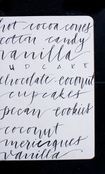 hot cocoa cones
cotton candy
vanilla
CUPCAKE
chocolate coconut
cupcakes
pecan cookies
coconut
meringues
vanilla